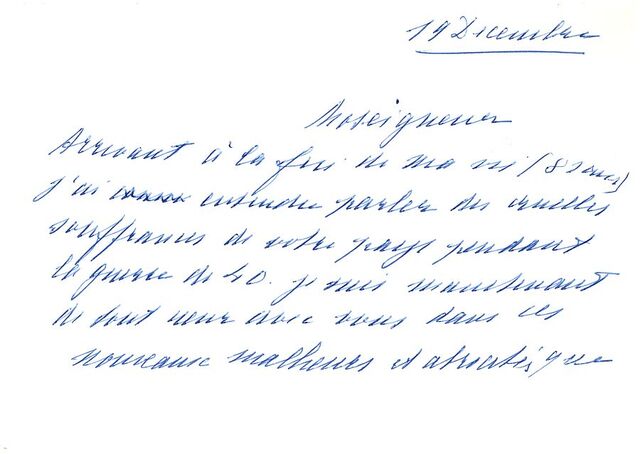 19 Decembre
Moseigneur
Arrivant à la fin de ma vi (8 ans)
j'ai entendu parler des cruelles
souffrances de votre pays pendant
la guerre de 40. je suis maintenant
de tout cœur avec vous dans ces
nouveaux malheurs et atrocités que